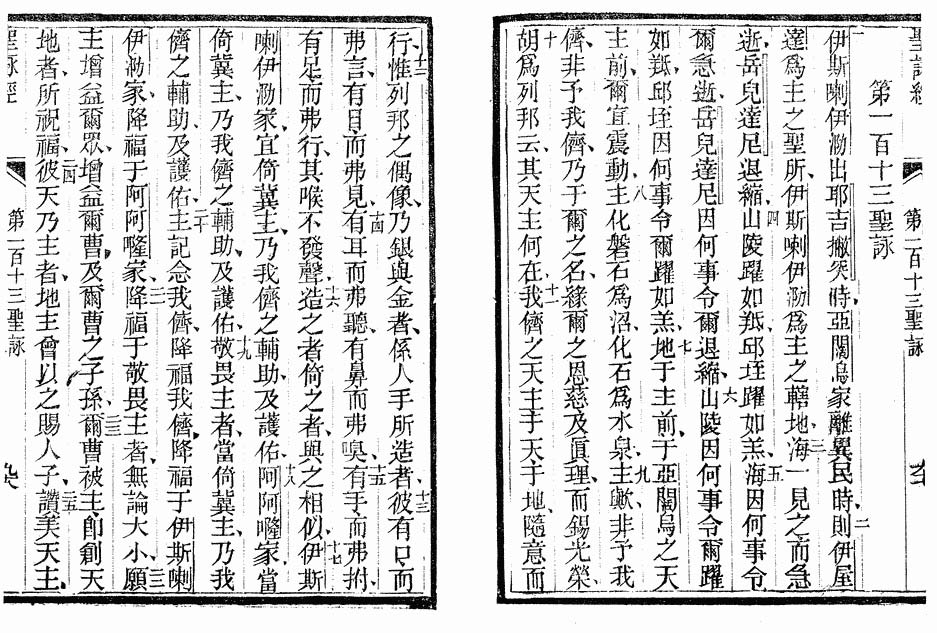 聖詠經 第一百十三聖詠
第一百十三聖詠
一伊斯喇伊泐出耶吉撇突時、亞闊烏家離異民時、二則伊屋
達為主之聖所、伊斯喇伊泐為主之轄地、三海一見之而急
逝、岳兒達尼退縮、四山陵躍如羝、邱垤躍如羔、五海因何事令
爾急逝、岳兒達尼因何事令爾退縮、六山陵因何事令爾躍
如羝、邱垤因何事令爾躍如羔、七地于主前、于亞闊烏之天
主前、爾宜震動、八主化磐石為沼、化石為水泉、九主歟、非予我
儕、非予我儕、乃于爾之名、緣爾之恩慈及眞理、而錫光榮、
十胡為列邦云、其天主何在、十一我儕之天主于天于地、隨意而
行、十二惟列邦之偶像、乃銀與金者、係人手所造者、十三彼有口而
弗言、有目而弗見、十四有耳而弗聽、有鼻而弗嗅、十五有手而弗拊、
有足而弗行、其喉不發聲、十六造之者、倚之者、與之相似、十七伊斯
喇伊泐家宜倚冀主、乃我儕之輔助、及護佑、十八阿阿㘄家當
倚冀主、乃我儕之輔助、及護佑、十九敬畏主者、當倚冀主、乃我
儕之輔助及護佑、二十主記念我儕、降福我儕、降福于伊斯喇
伊泐家、降福于阿阿㘄家、二一降福于敬畏主者、無論大小、二二願
主增益爾眾、增益爾曹、及爾曹之子孫、二三爾曹被主、卽創天
地者所祝福、二四彼天乃主者、地主曾以之賜人子、二五讚美天主、
聖詠經 第一百十三聖詠